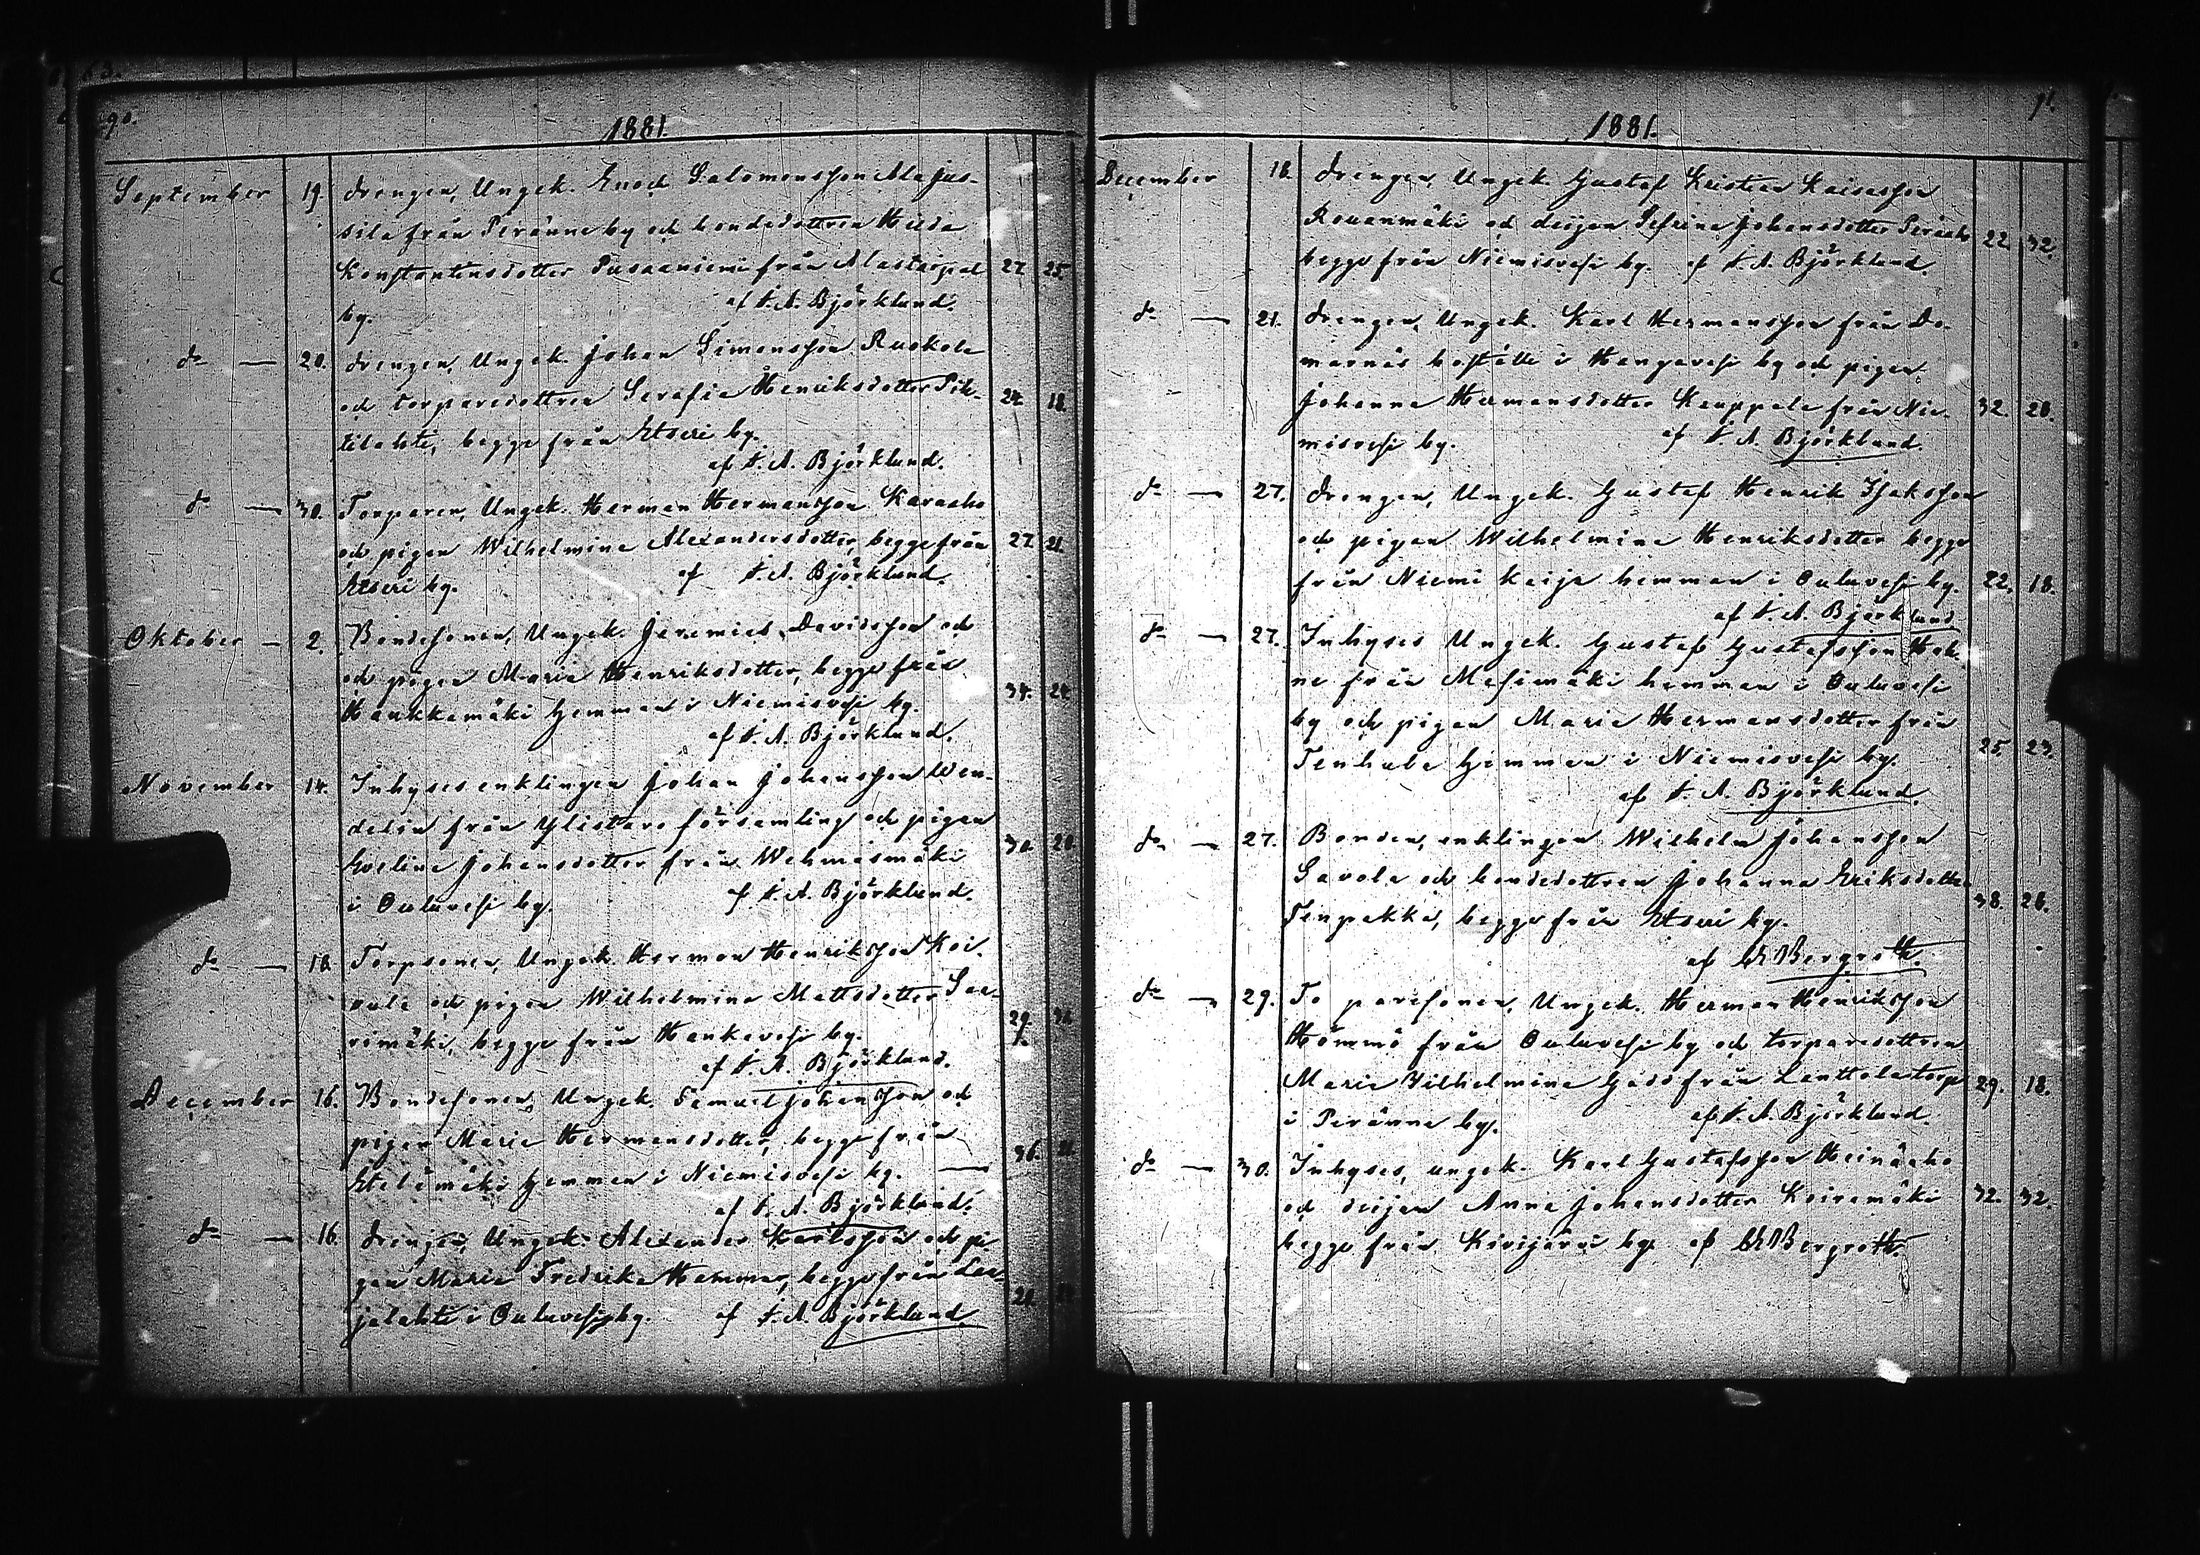 90.
1881.
September 19. drengen, Ungek. Enock Salomonsson Alajus-
sila från Peränne by och bondedottren Hilda
Konstantinsdotter Pusaaniemi från Alastaipal 27. 25.
by. af F. A. Björklund.
do — 20. drengen, Ungek. Johan Simonsson Ruokola
och torparedottren Serafia Henriksdotter Pik- 24. 18.
kilakti, begge från Etseri by.
af F. A. Björklund.
do — 30. Torparen, Ungek. Herman Hermansson Karaaho
och pigan Wilhelmina Alexandersdotter, begge från 27. 21.
Etseri by. af F. A. Björklund.
Oktober — 2. Bondesonen, Ungek. Jeremias Davidsson och
och pigan Maria Henriksdotter, begge från
Haukkamäki hemman i Niemisvesi by. 34. 24.
af F. A. Björklund.
November 14. Inhyses enklingen Johan Johansson Wen-
delin från Ylistaro församling och pigan
Evelina Johansdotter från Wehmasmäki 30. 20.
i Ouluvesi by. af F. A. Björklund.
do — 18. Torpsonen, Ungek. Herman Henriksson Koi-
vula och pigan Wilhelmina Mattsdotter Saa-
rimäki, begge från Hankavesi by. 29.
af F. A. Björklund.
December 16. Bondesonen, Ungek. Samuel Johansson och
pigan Maria Hermansdotter, begge från
Etelämäki hemman i Niemisvesi by. — 36.
af F. A. Björklund.
do — 16. drengen, Ungek. Alexander Karlsson och pi-
gan Maria Fredrika Hemmer, begge från
jalahti i Ouluvesi by. af F. A. Björklund.
91.
1881.
December 18. drengen, Ungek. Gustaf Kristian Kaisasson
Rouanmäki och deijan Sefrina Johansdotter 22. 32.
begge från Niemisvesi by. af F. A. Björklund.
do — 21. drengen, Ungek. Karl Hermansson från Do-
marnäs boställe i Hangavesi by och pigan
Johanna Hermansdotter Kauppala från Nie- 32. 20.
misvesi by. af F. A. Björklund.
do — 27. drengen, Ungek. Gustaf Henrik Isaksson
och pigan Wilhelmina Henriksdotter begge
från Niemi Keija hemman i Ouluvesi by. 22. 18.
af F. A. Björklund.
do — 27. Inhyses Ungek. Gustaf Gustafsson Hak-
ne från Mesimäki hemman i Ouluvesi
by och pigan Maria Hermansdotter från
Tenhula hemman i Niemisvesi by. 25. 23.
af F. A. Björklund.
do — 27. Bonden, enklingen Wilhelm Johansson
Savola och bondedottren Johanna Eriksdotter
Finpakka, begge från Etseri by. 38. 26.
af Bergroth.
do — 29. To paresonen, Ungek. Herman Henriksson
Hömmö från Ouluvesi by och torparedottren
Maria Vilhelmina Gadd från Lenttola torp 29. 18.
i Peränne by. af F. A. Björklund.
do — 30. Inhyses, ungek. Karl Gustafsson Heinäaho
och deijan Anna Johansdotter Koiramäki 32. 32.
begge från Kivijärvi by. af Bergroth.